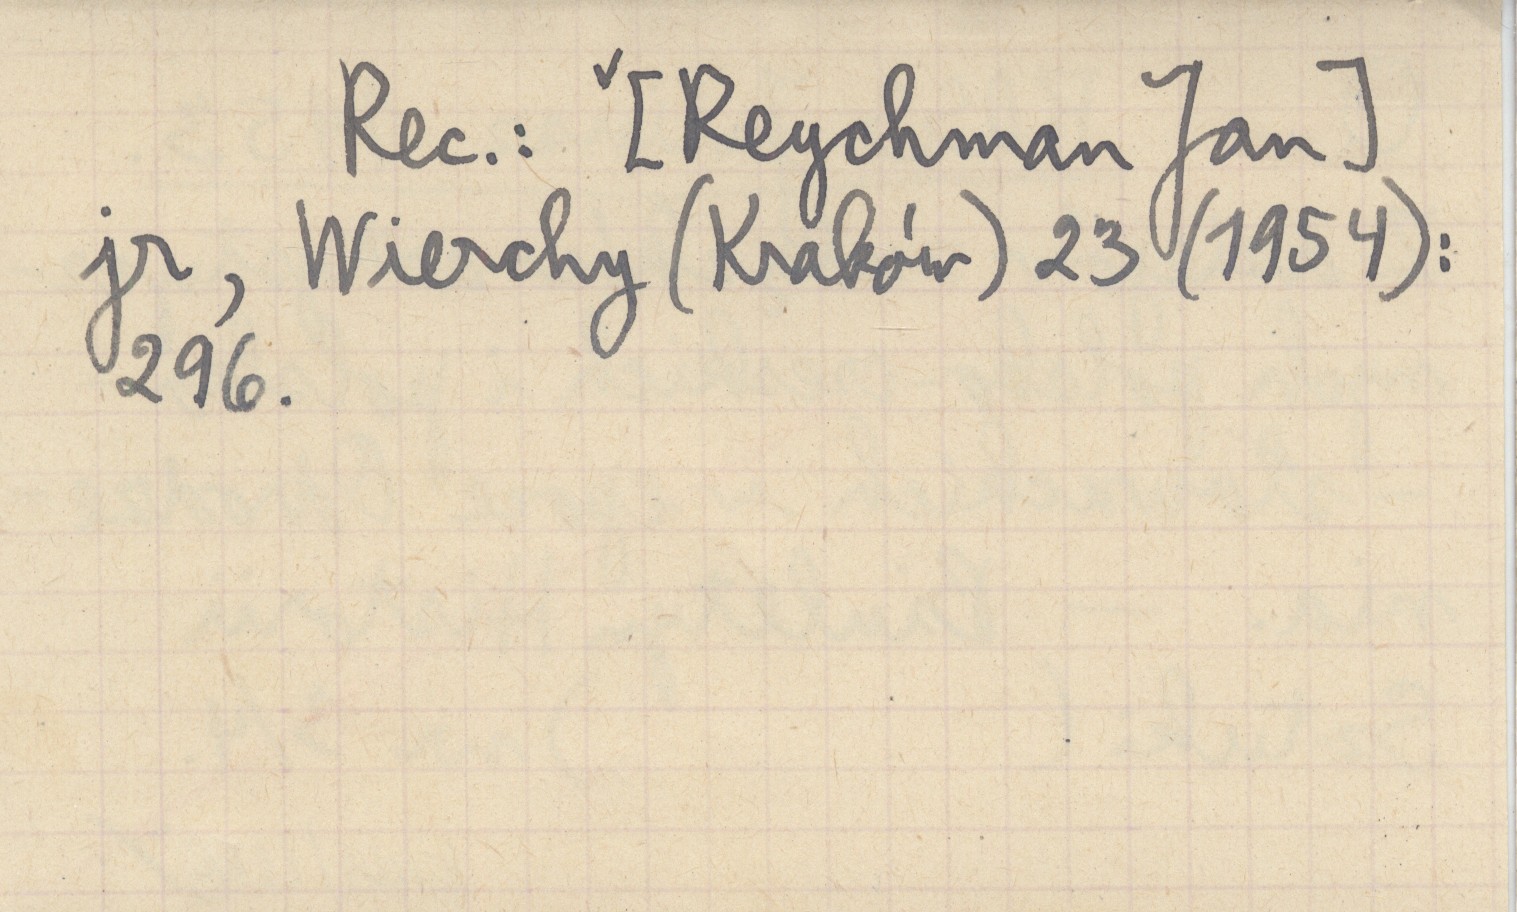 Rec.: ✓[Reychman Jan]
jr, Wierchy (Kraków) 23 (1954):
296.